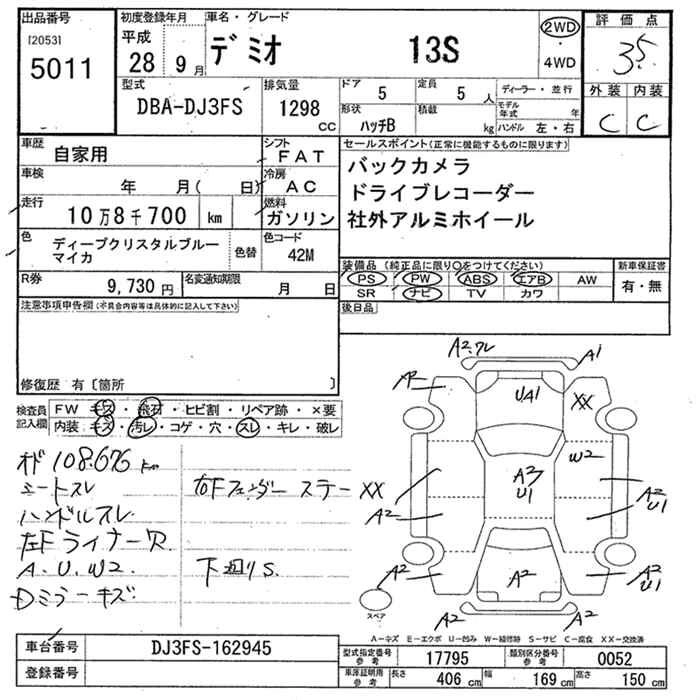 出品番号 初度登録年月 車名・グレード 評価点
[2053] 平成 デミオ 13S 2WD
5011 28年 9月 ・ 4WD 3.5
型式 排気量 ドア 定員 ディーラー・並行 外装 内装
DBA-DJ3FS 1298 CC 5 5人 モデル年式 年 C C
形状 ハッチB 積載 kg ハンドル 左・右
車歴 自家用 シフト FAT セールスポイント(正常に機能するものに限ります)
車検 年 月( 日) 冷房 AC バックカメラ
ドライブレコーダー
走行 10万8千700 km 燃料 ガソリン 社外アルミホイール
色 ディープクリスタルブルー 色替 色コード
マイカ 42M
装備品(純正品に限り○をつけてください) 新車保証書
R券 9,730円 名変通知期限 月 日 PS PW ABS エアB AW 有・無
SR ナビ TV カワ
注意事項申告欄(不具合内容等は具体的に記入して下さい) 後日品
修復歴 有〔箇所 〕
検査員 FW キズ・飛石・ヒビ割・リペア跡・×要
記入欄 内装 キズ・汚レ・コゲ・穴・スレ・キレ・破レ
オド 108,676 km
シートスレ 右Fフェンダーステー XX
ハンドルスレ
左Fライナー欠
A.U.W2. 下廻りS.
Dミラーキズ
A2.ワレ A1
A2 UA1 XX
W2
A3 U1
A2 A2 U1
A2 A2 A2 U1
スペア A2 A2
A-キズ E-エクボ U-凹み W-補修跡 S-サビ C-腐食 XX-交換済
車台番号 DJ3FS-162945
登録番号
型式指定番号 参考 17795 類別区分番号 参考 0052
車庫証明用 参考 長さ 406 cm 幅 169 cm 高さ 150 cm